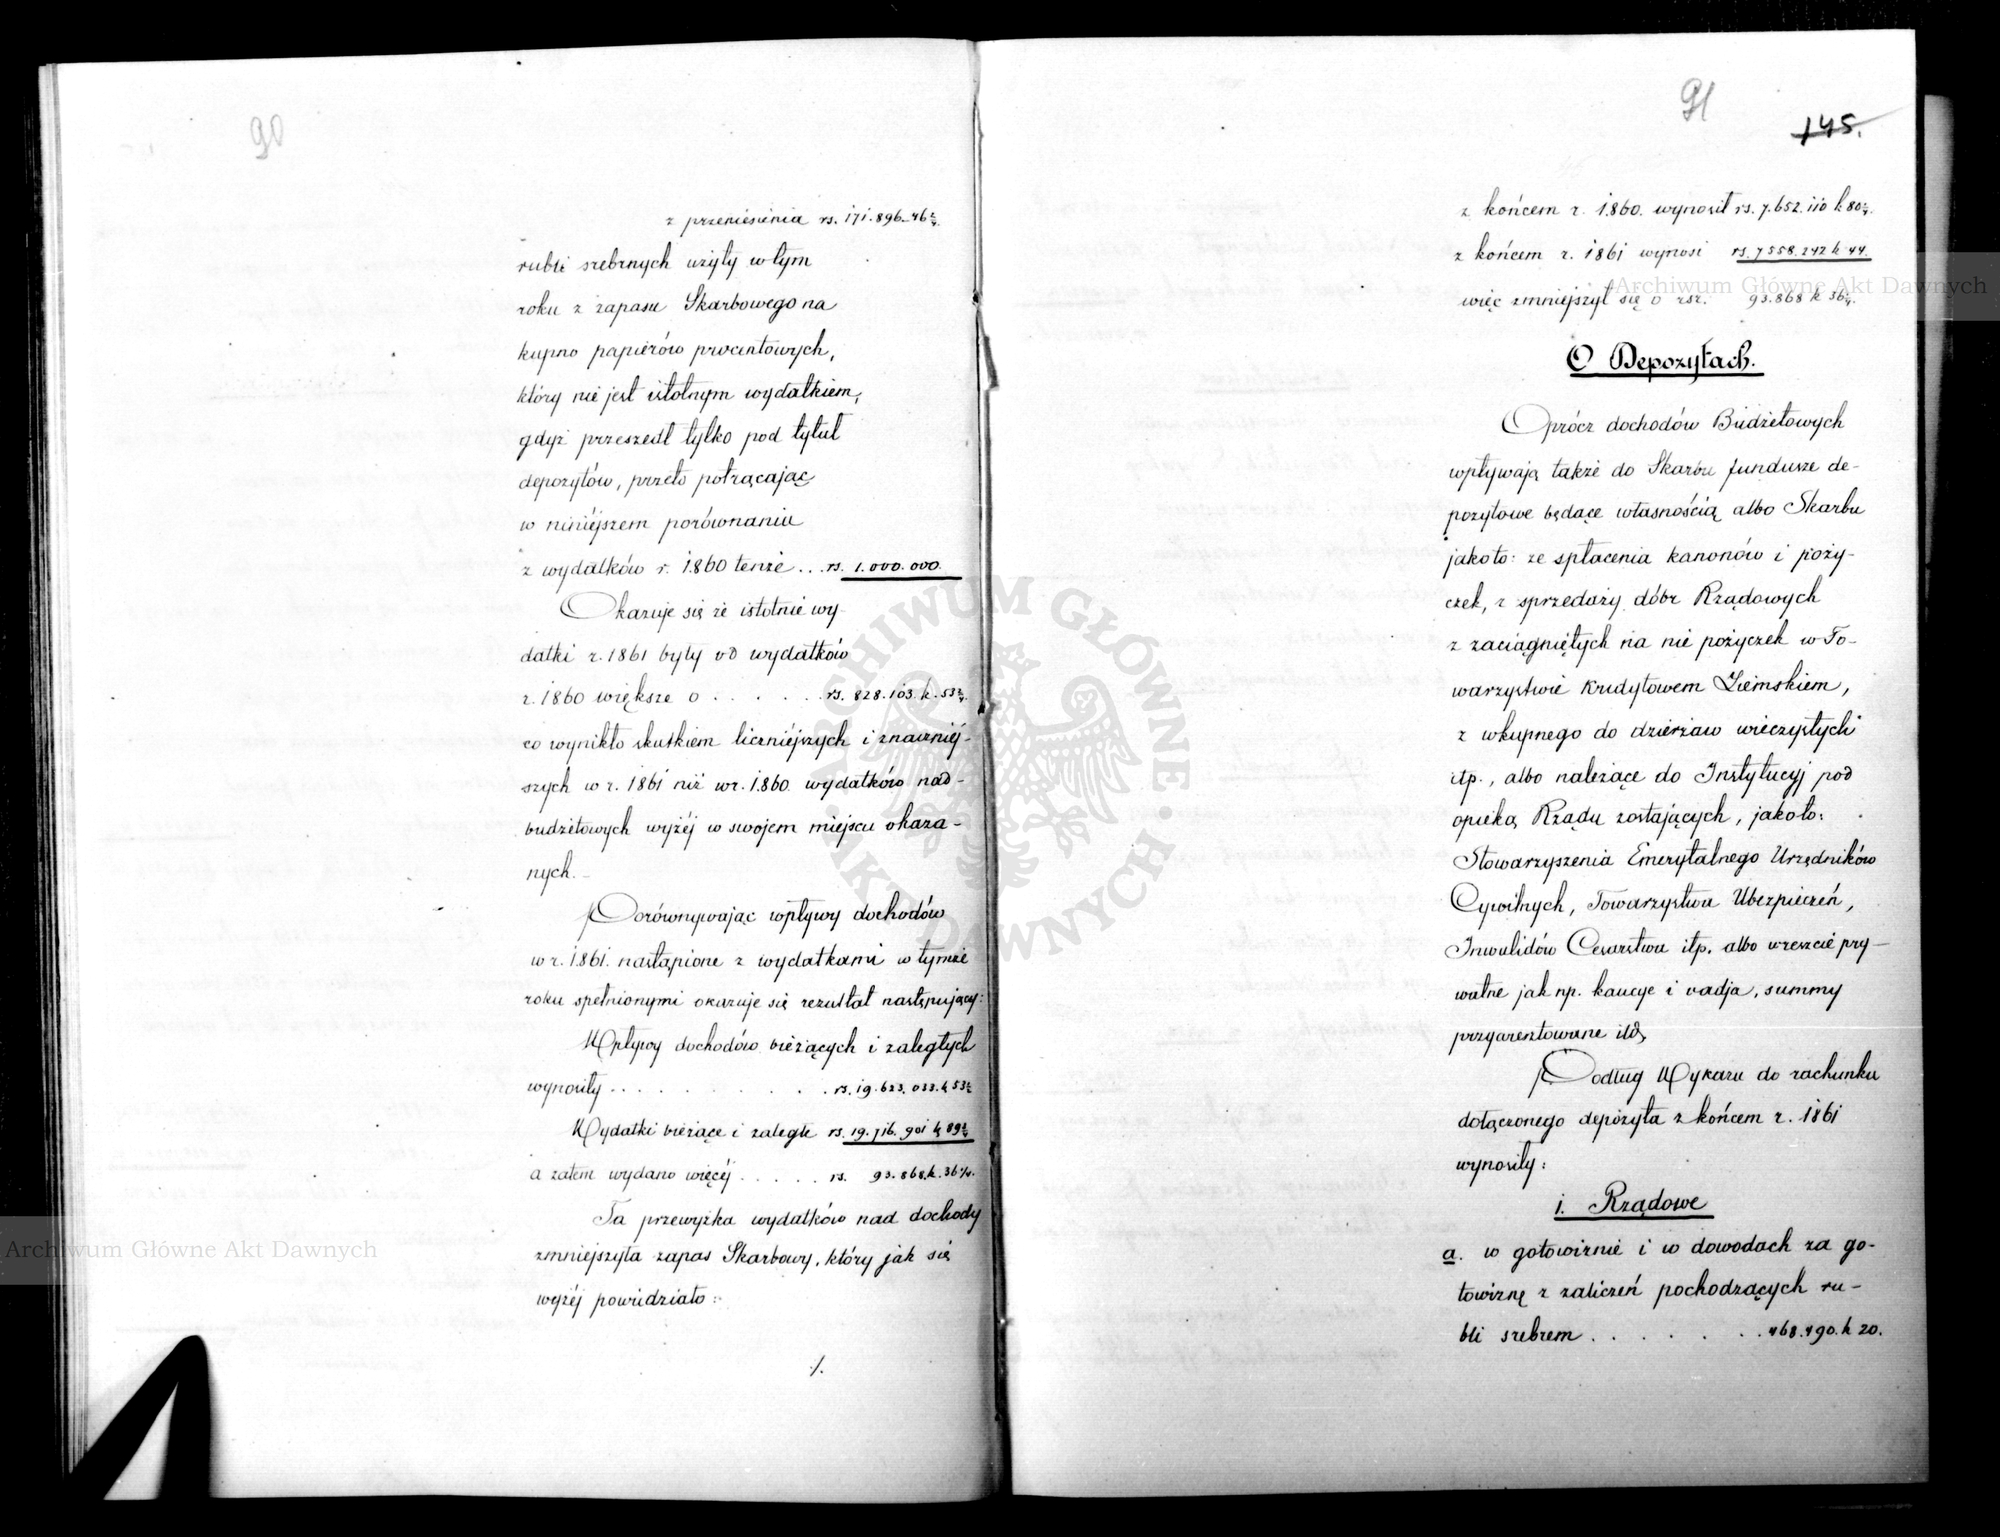 90
z przeniesienia rs. 171.896.46 2/4.
rubli srebrnych użyty w tym
roku z zapasu Skarbowego na
kupno papierów procentowych,
który nie jest istotnym wydatkiem,
gdyż przeszedł tylko pod tytuł
depozytów, przeto potrącając
w niniéjszem porównaniu
z wydatków r. 1860 tenże ... rs. 1.000.000.
Okazuje się że istotnie wy-
datki r. 1861 były od wydatków
r. 1860 większe o . . . . . . rs. 828.103. k. 53 2/4.
co wynikło skutkiem liczniéjszych i znaczniéj-
szych w r. 1861 niż w r. 1860. wydatków nad-
budżetowych wyżéj w swojem miejscu okaza-
nych. -
Porównywając wpływy dochodów
w r. 1861. nastąpione z wydatkami w tymże
roku spełnionymi okazuje się rezultat następujący:
Wpływy dochodów bieżących i zaległych
wynosiły . . . . . . . . rs. 19.623.033. k 53 2/4
Wydatki bieżące i zaległe rs. 19.716.901 k 89 3/4
a zatem wydano więcéj . . . . . rs. 93.868. k. 36 1/4.
Ta przewyżka wydatków nad dochody
zmniejszyła zapas Skarbowy, który jak się
wyżéj powiedziało:
./.
91
145.
z końcem r. 1860. wynosił rs. 7.652.110 k 80 1/4.
z końcem r. 1861 wynosi rs. 7558.242 k 44.
więc zmniejszył się o rsr. 93.868 k 36 1/4.
O Depozytach.
Oprócz dochodów Budżetowych
wpływają także do Skarbu fundusze de-
pozytowe będące własnością albo Skarbu
jakoto: ze spłacenia kanonów i poży-
czek, z sprzedaży dóbr Rządowych
z zaciągniętych na nie pożyczek w To-
warzystwie Kredytowem Ziemskiem,
z wkupnego do dzierżaw wieczystych
itp., albo należące do Instytucyj pod
opieką Rządu zostających, jakoto:
Stowarzyszenia Emerytalnego Urzędników
Cywilnych, Towarzystwa Ubezpieczeń,
Inwalidów Cesarstwa itp. albo wreszcie pry-
watne jak np. kaucye i vadja, summy
przyaresztowane itd.
Podług Wykazu do rachunku
dołączonego depozyta z końcem r. 1861
wynosiły:
1. Rządowe
a. w gotowiznie i w dowodach za go-
towiznę z zaliczeń pochodzących ru-
bli srebrem . . . . . . . 468.490. k 20.
Archiwum Główne Akt Dawnych
Archiwum Główne Akt Dawnych
ARCHIWUM GŁÓWNE · AKT DAWNYCH ·